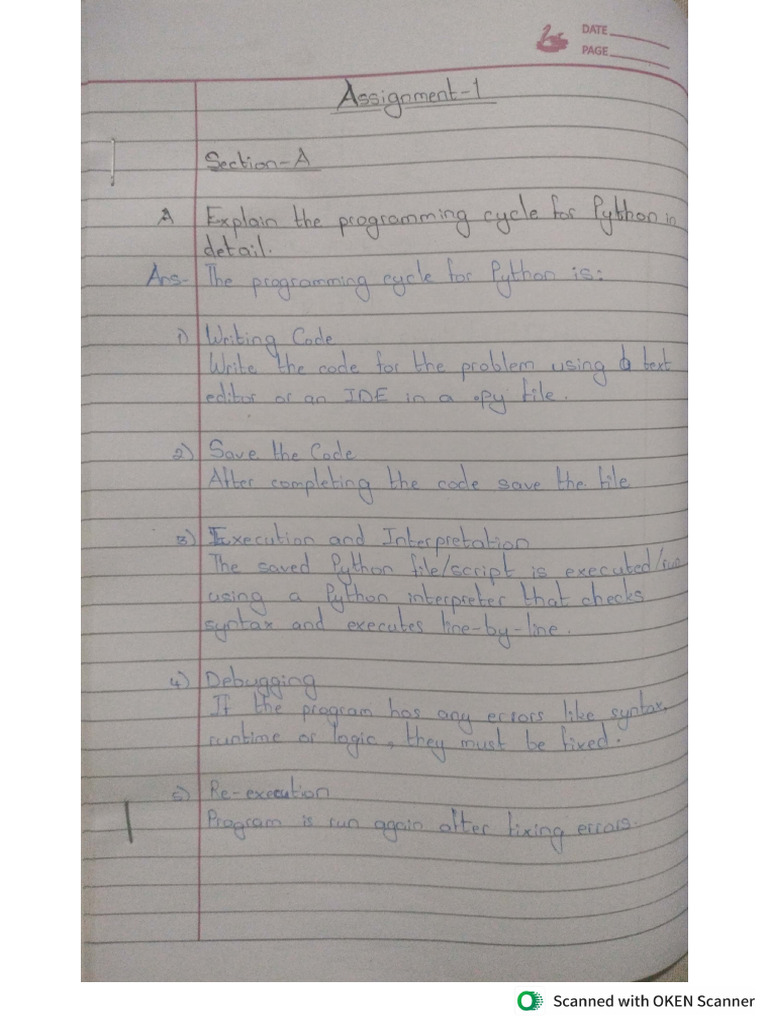 DATE
PAGE
Assignment-1
Section-A
A Explain the programming cycle for Python in
detail.
Ans- The programming cycle for Python is:
1) Writing Code
Write the code for the problem using a text
editor or an IDE in a .py file.
2) Save the Code
After completing the code save the file
3) Execution and Interpretation
The saved Python file/script is executed/run
using a Python interpreter that checks
syntax and executes line-by-line.
4) Debugging
If the program has any errors like syntax,
runtime or logic, they must be fixed.
5) Re-execution
Program is run again after fixing errors.
Scanned with OKEN Scanner